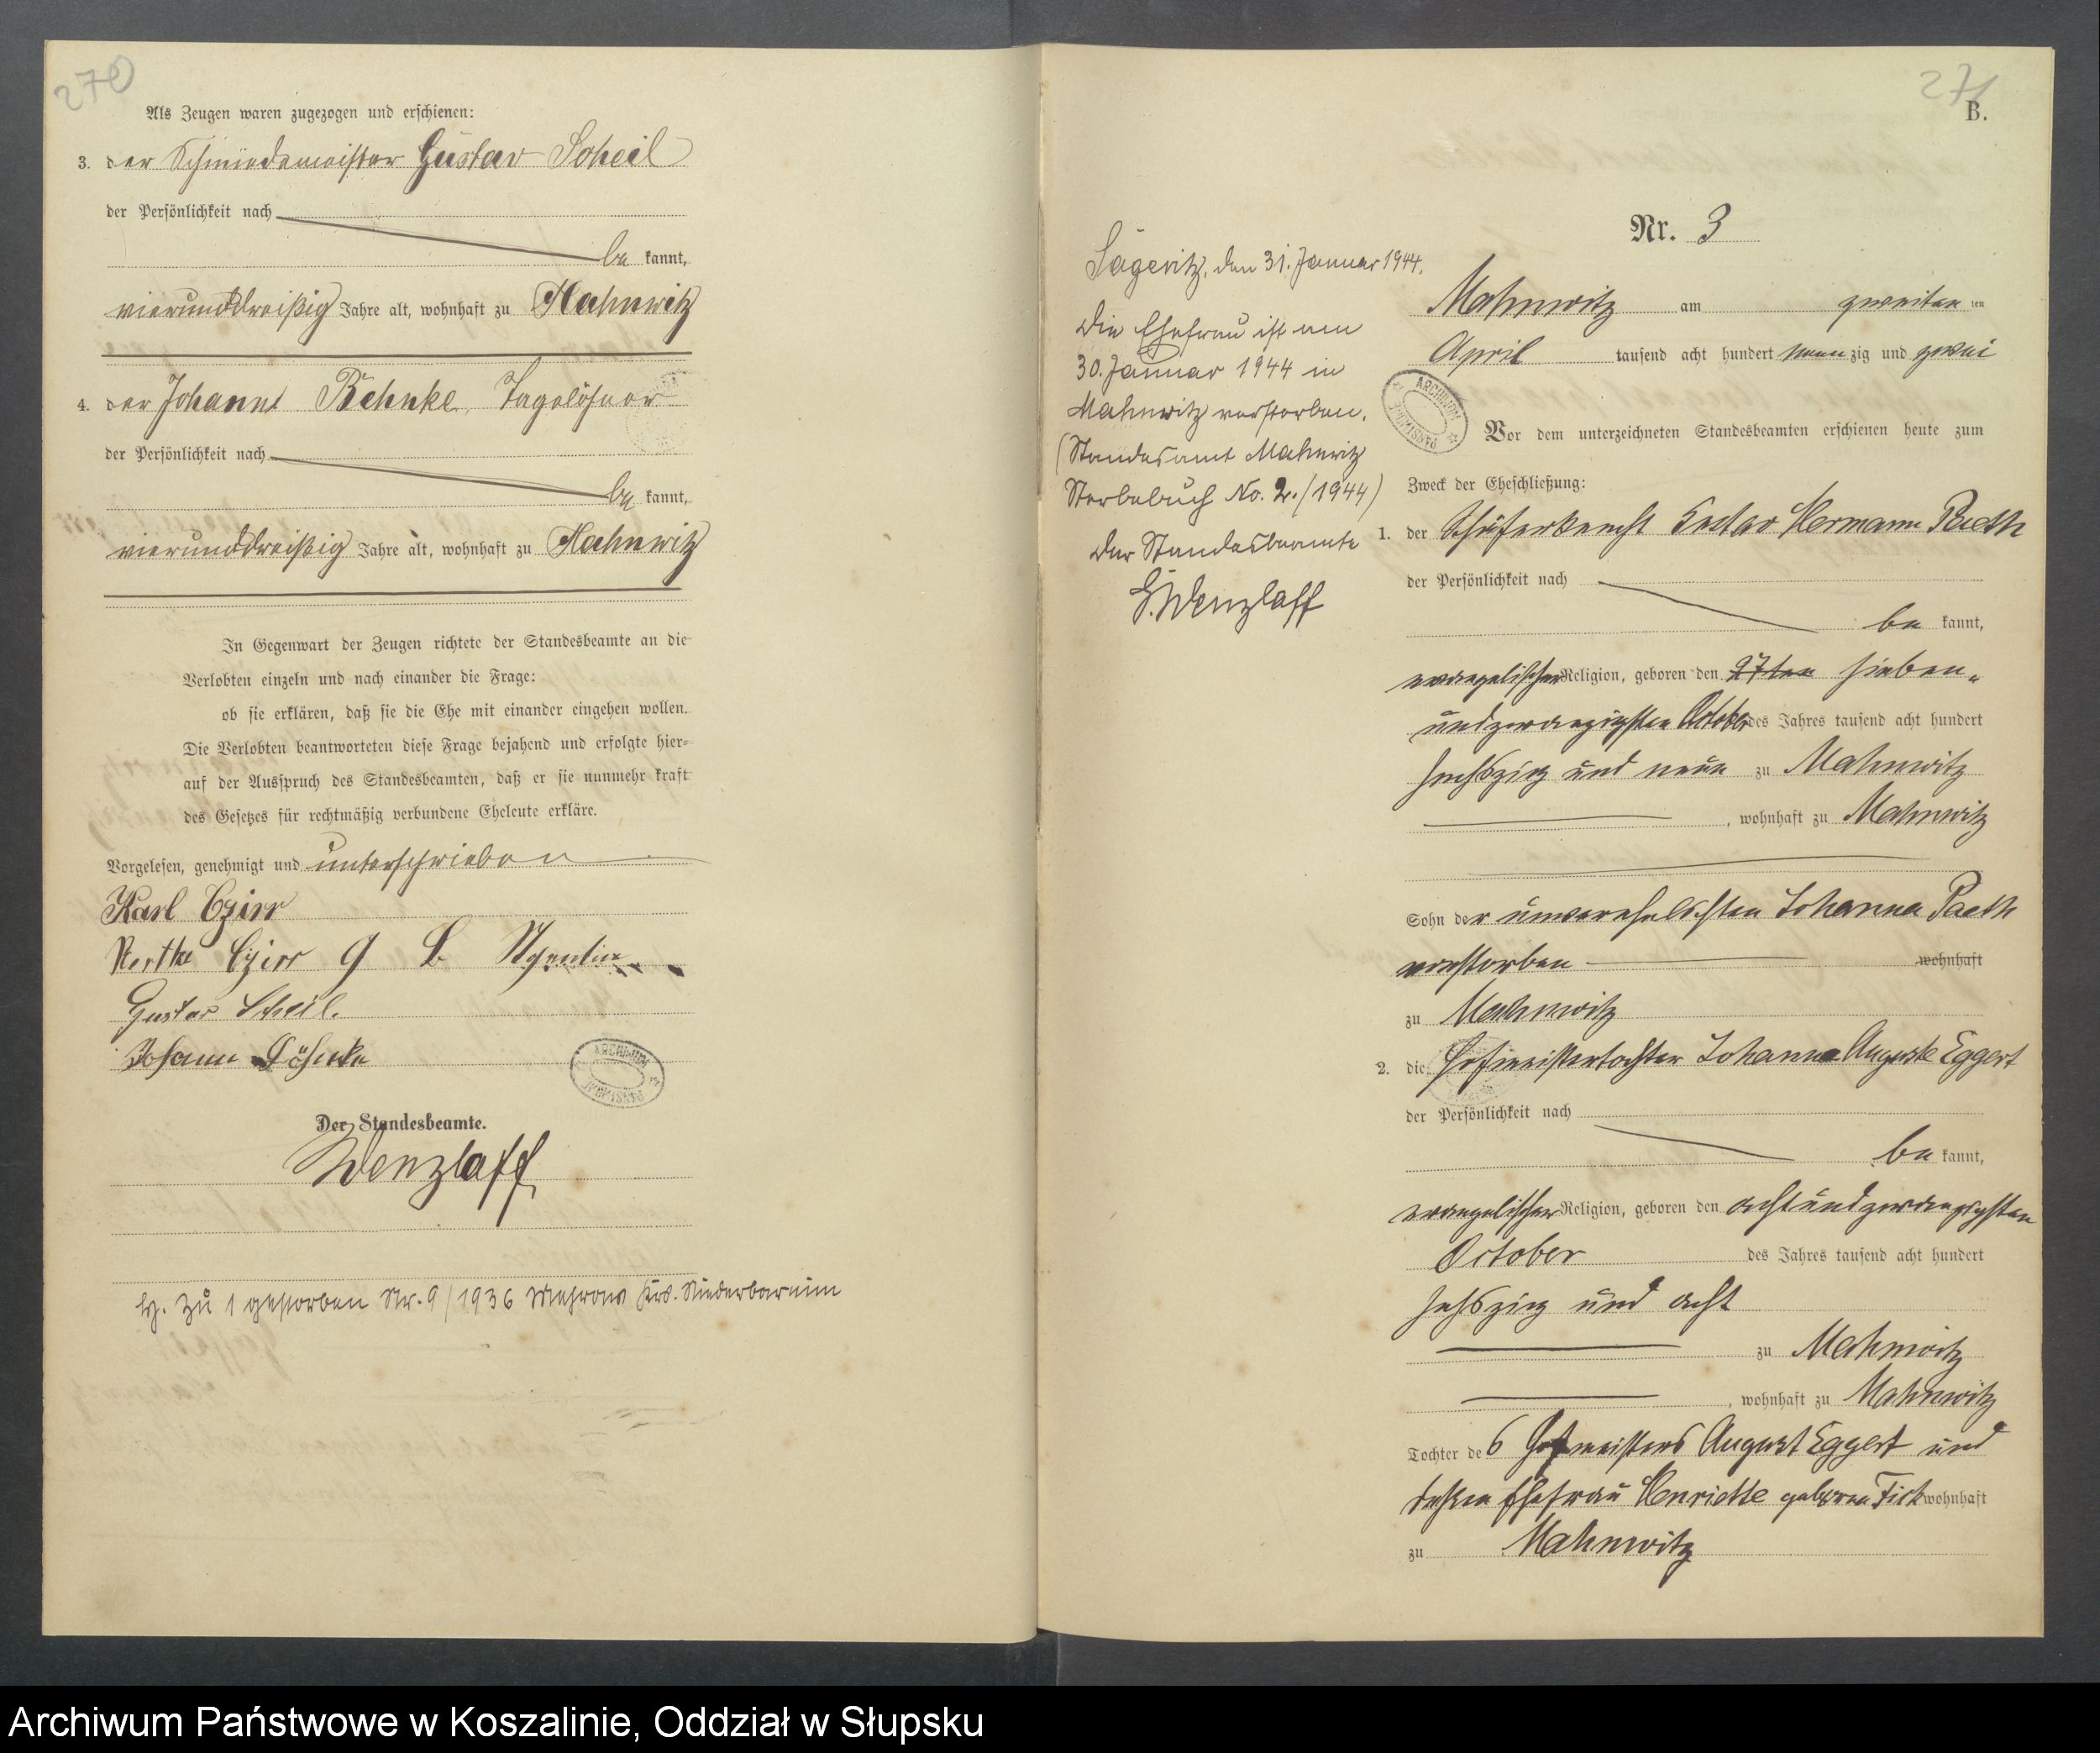 270
Als Zeugen waren zugezogen und erschienen:
3. der Schmiedemeister Gustav Scheil
der Persönlichkeit nach
be kannt,
vierunddreißig Jahre alt, wohnhaft zu Mahnwitz
4. der Johann Behnke, Tagelöhner
der Persönlichkeit nach
be kannt,
vierunddreißig Jahre alt, wohnhaft zu Mahnwitz
In Gegenwart der Zeugen richtete der Standesbeamte an die
Verlobten einzeln und nach einander die Frage:
ob sie erklären, daß sie die Ehe mit einander eingehen wollen.
Die Verlobten beantworteten diese Frage bejahend und erfolgte hier=
auf der Ausspruch des Standesbeamten, daß er sie nunmehr kraft
des Gesetzes für rechtmäßig verbundene Eheleute erkläre.
Vorgelesen, genehmigt und unterschrieben
Karl Czirr
Czirr g
Gustav Scheil.
Johann
ARCHIWUM PAŃSTWOWE
Der Standesbeamte.
Wenzlaff
H. zu 1 gestorben Nr. 9/1936 Mehrow Krs. Niederbarnim
271
B.
Nr. 3
Mahnwitz am zweiten ten
April tausend acht hundert neun zig und zwei
ARCHIWUM PAŃSTWOWE
Vor dem unterzeichneten Standesbeamten erschienen heute zum
Zweck der Eheschließung:
1. der Schäferknecht Gustav Hermann Paeth
der Persönlichkeit nach
be kannt,
evangelischer Religion, geboren den 27ten sieben-
undzwanzigsten October des Jahres tausend acht hundert
sechszig und neun zu Mahnwitz
, wohnhaft zu Mahnwitz
Sohn der unverehelichten Johanna Paeth
verstorben wohnhaft
zu Mahnwitz
2. die Hofmeistertochter Johanna Auguste Eggert
der Persönlichkeit nach
be kannt,
evangelischer Religion, geboren den achtundzwanzigsten
October des Jahres tausend acht hundert
sechszig und acht
zu Mahnwitz
, wohnhaft zu Mahnwitz
Tochter des Hofmeisters August Eggert und
dessen Ehefrau Henriette geboren Fick wohnhaft
zu Mahnwitz
Sageritz, den 31. Januar 1944.
Die Ehefrau ist am
30. Januar 1944 in
Mahnwitz verstorben.
(Standesamt Mahnwitz
Sterbebuch No. 2./1944)
Der Standesbeamte
G. Wenzlaff
Archiwum Państwowe w Koszalinie, Oddział w Słupsku